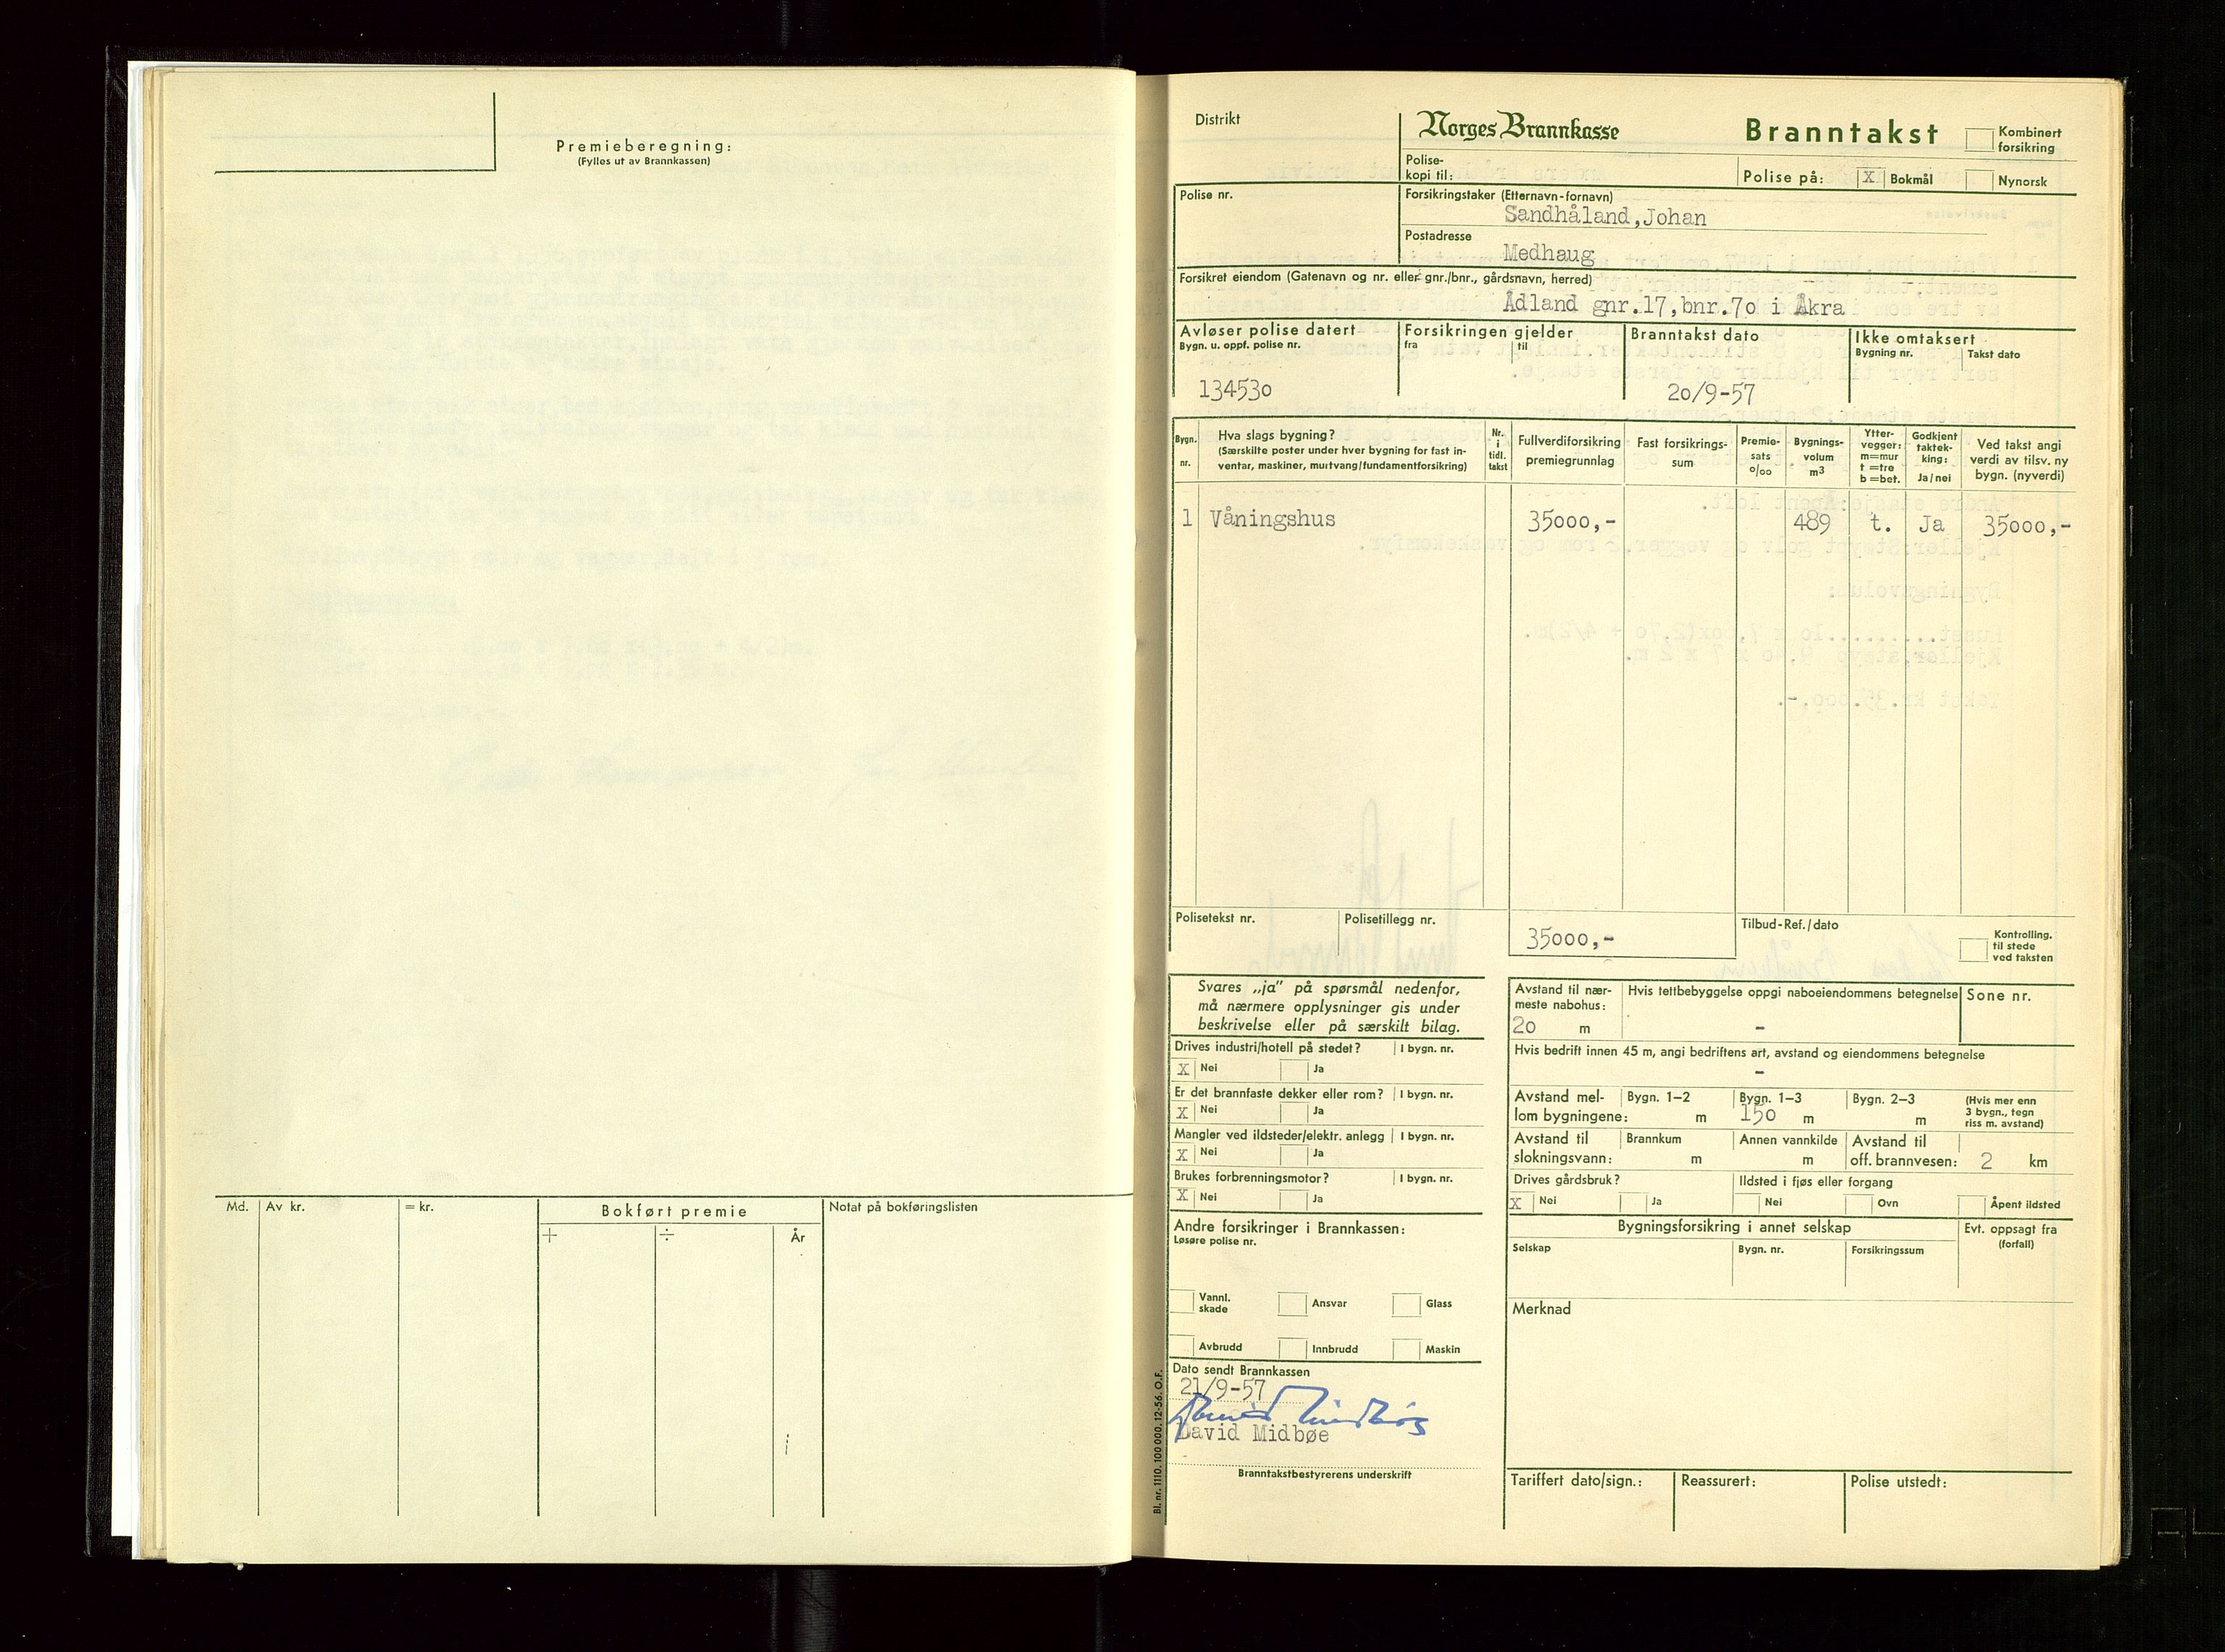 Premieberegning:
(Fylles ut av Brannkassen)
Md. Av kr. = kr. Bokført premie Notat på bokføringslisten
+ ÷ År
Distrikt
Norges Brannkasse
Branntakst
Kombinert forsikring
Polise-kopi til:
Polise på: X Bokmål Nynorsk
Polise nr.
Forsikringstaker (Etternavn-fornavn)
Sandhåland, Johan
Postadresse
Medhaug
Forsikret eiendom (Gatenavn og nr. eller gnr./bnr., gårdsnavn, herred)
Ådland gnr.17, bnr.7o i Åkra
Avløser polise datert
Bygn. u. oppf. polise nr.
134530
Forsikringen gjelder
fra til
Branntakst dato
2o/9-57
Ikke omtaksert
Bygning nr. Takst dato
Bygn. nr.
Hva slags bygning?
(Særskilte poster under hver bygning for fast in-
ventar, maskiner, murtvang/fundamentforsikring)
Nr. i tidl. takst
Fullverdiforsikring premiegrunnlag
Fast forsikrings-sum
Premie-sats o/oo
Bygnings-volum m3
Ytter-vegger: m=mur t=tre b=bet.
Godkjent taktek-king: Ja/nei
Ved takst angi verdi av tilsv. ny bygn. (nyverdi)
1 Våningshus 35000,- 489 t. Ja 35000,-
Polisetekst nr. Polisetillegg nr.
35000,-
Tilbud-Ref./dato
Kontrolling. til stede ved taksten
Svares „ja” på spørsmål nedenfor,
må nærmere opplysninger gis under
beskrivelse eller på særskilt bilag.
Drives industri/hotell på stedet? I bygn. nr.
X Nei Ja
Er det brannfaste dekker eller rom? I bygn. nr.
X Nei Ja
Mangler ved ildsteder/elektr. anlegg I bygn. nr.
X Nei Ja
Brukes forbrenningsmotor? I bygn. nr.
X Nei Ja
Andre forsikringer i Brannkassen:
Løsøre polise nr.
Vannl. skade Ansvar Glass
Avbrudd Innbrudd Maskin
Dato sendt Brannkassen
21/9-57
David Midbøe
David Midbøe
Branntakstbestyrerens underskrift
Bl. nr. 1110. 100 000. 12-56. O.F.
Avstand til nær-meste nabohus:
2o m
Hvis tettbebyggelse oppgi naboeiendommens betegnelse
-
Sone nr.
Hvis bedrift innen 45 m, angi bedriftens art, avstand og eiendommens betegnelse
-
Avstand mel-lom bygningene:
Bygn. 1–2 m
Bygn. 1–3 150 m
Bygn. 2–3 m
(Hvis mer enn 3 bygn., tegn riss m. avstand)
Avstand til slokningsvann:
Brannkum m
Annen vannkilde m
Avstand til off. brannvesen: 2 km
Drives gårdsbruk?
X Nei Ja
Ildsted i fjøs eller forgang
Nei Ovn Åpent ildsted
Bygningsforsikring i annet selskap
Selskap Bygn. nr. Forsikringssum
Evt. oppsagt fra (forfall)
Merknad
Tariffert dato/sign.: Reassurert: Polise utstedt: